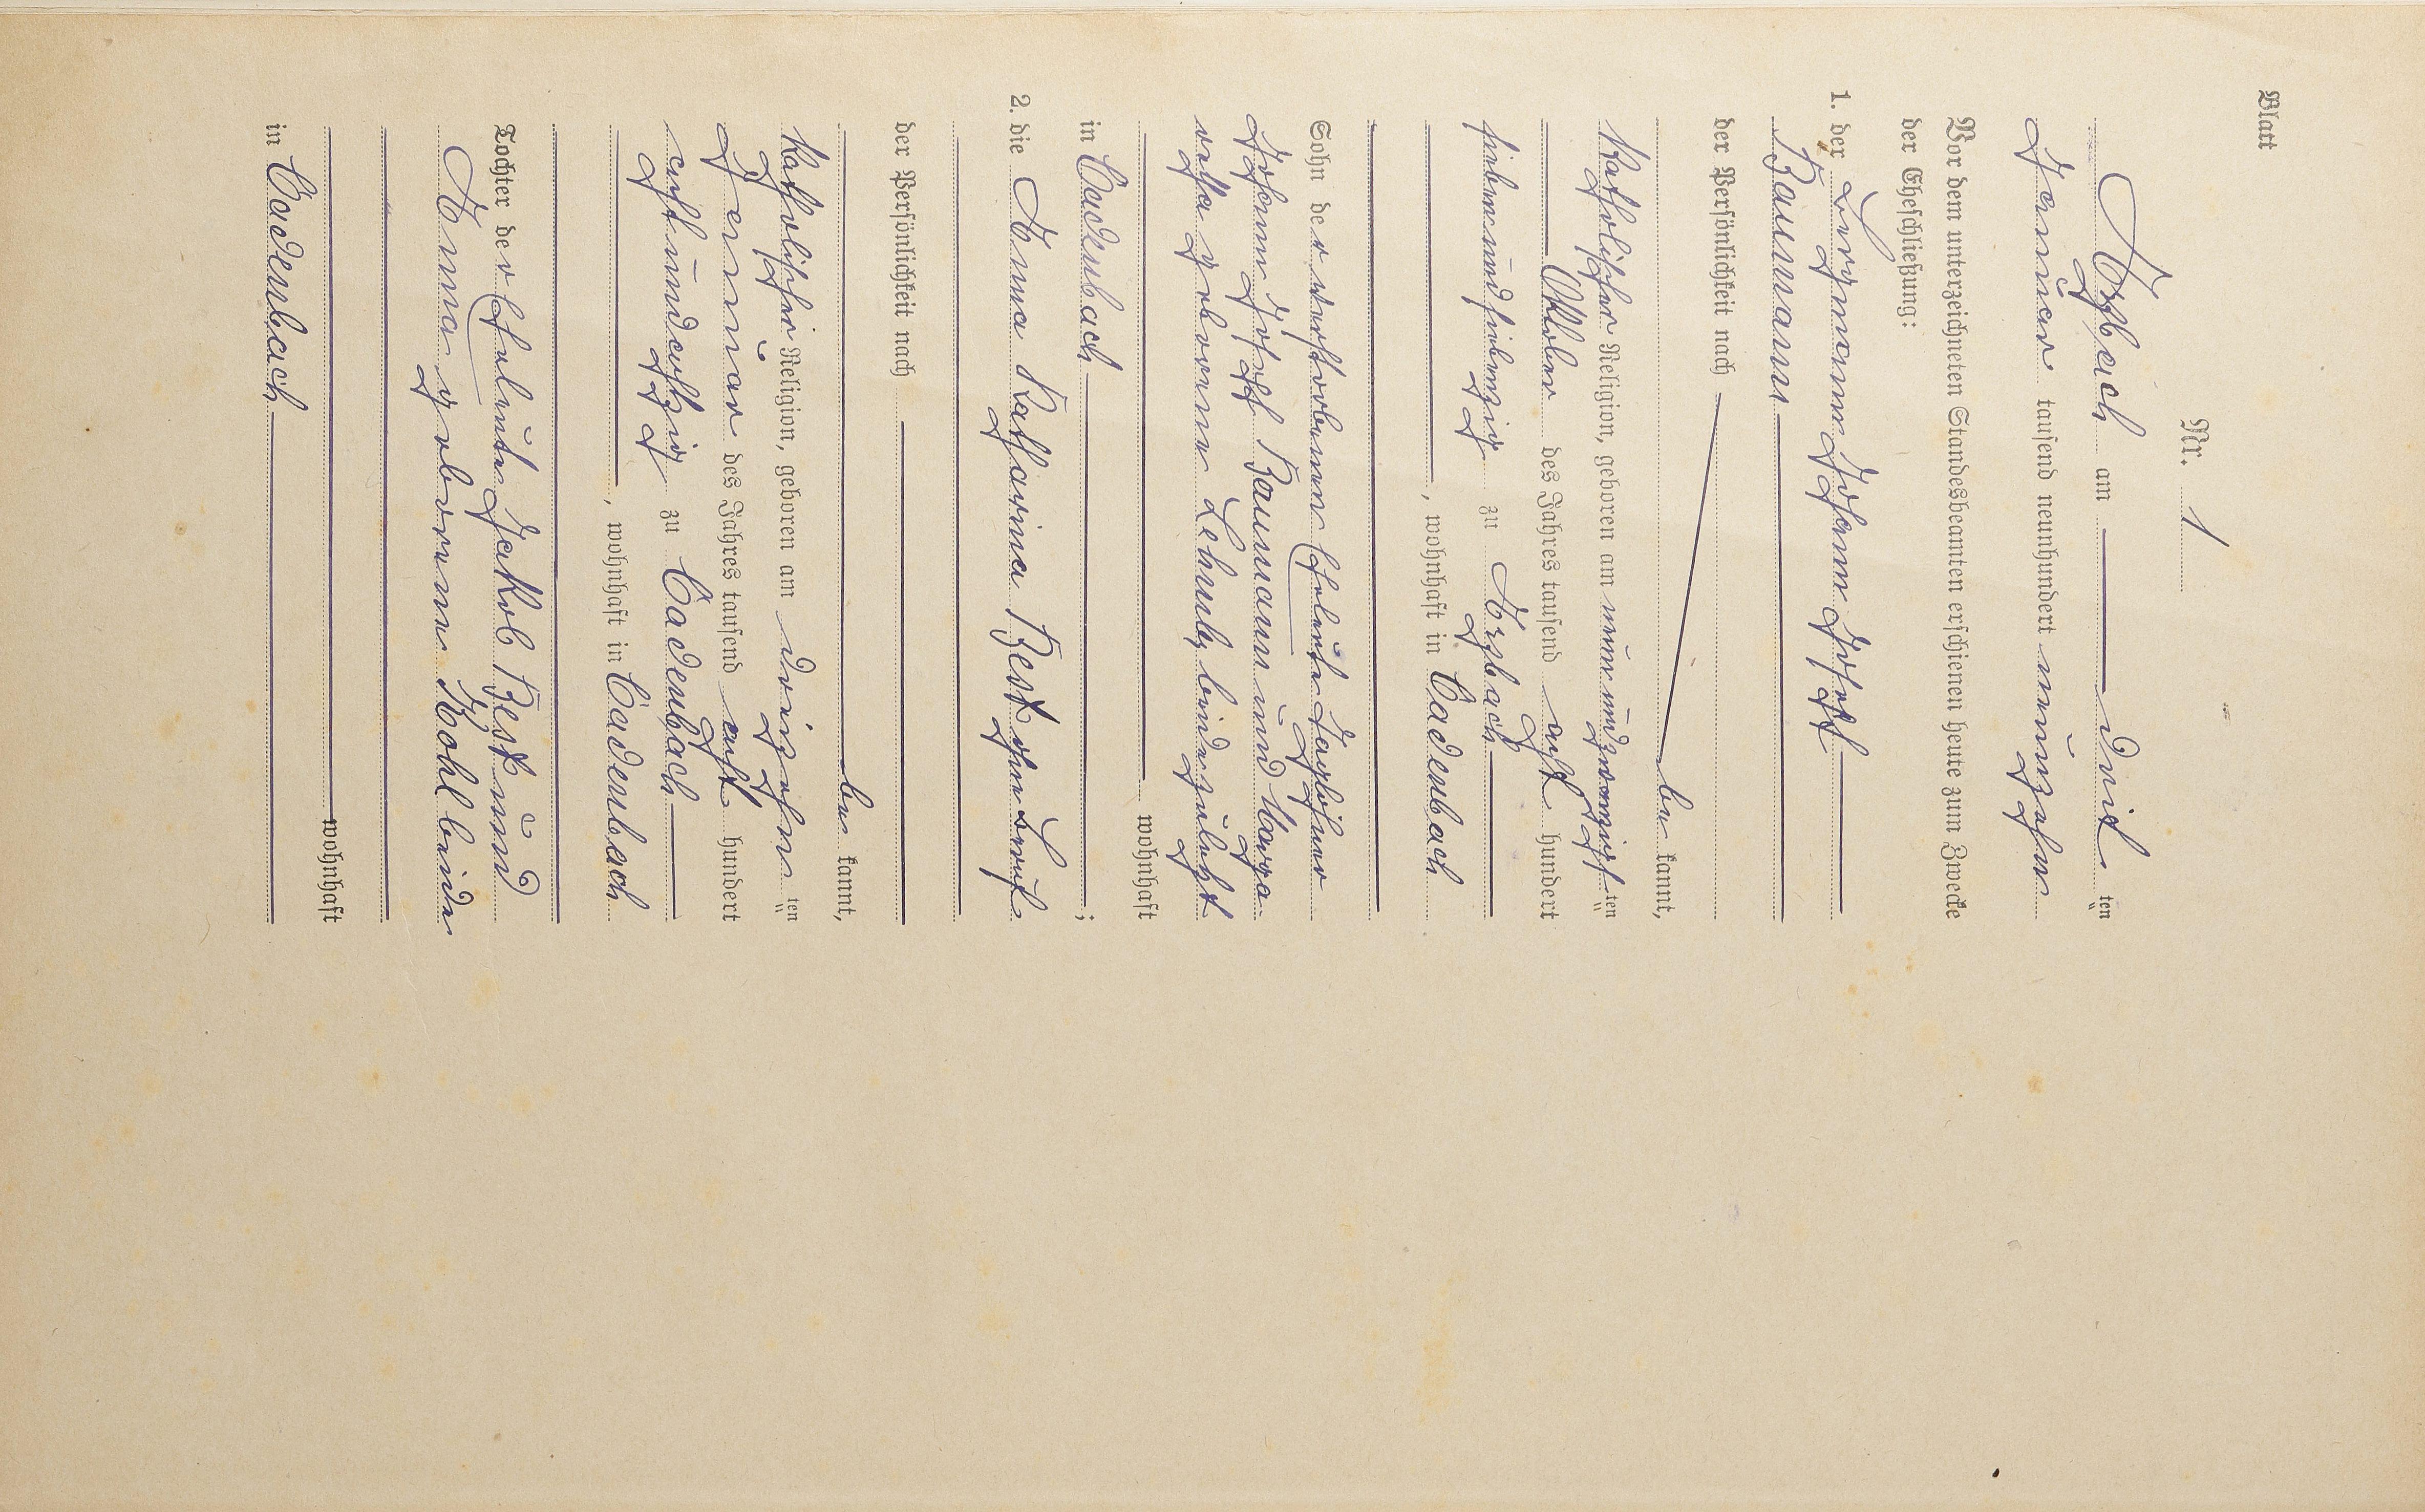 Blatt
Nr. 1
Arzbach am drit ten
Januar tausend neunhundert neunzehn
Vor dem unterzeichneten Standesbeamten erschienen heute zum Zwecke
der Eheschließung:
1. der Bergmann Johann Josef
Baumann
der Persönlichkeit nach
be kannt,
Katholischer Religion, geboren am neunundzwanzigst ten
Oktober des Jahres tausend acht hundert
siebenundsiebenzig zu Arzbach
, wohnhaft in Cadenbach
Sohn der verstorbenen Eheleute Taglöhner
Johann Josef Baumann und Marga-
retha geborene Lehmler beide zuletzt
wohnhaft
in Cadenbach ;
2. die Anna Katharina Best ohne Beruf
der Persönlichkeit nach
be kannt,
Katholischer Religion, geboren am dreizehn ten
Januar des Jahres tausend acht hundert
achtundachtzig zu Cadenbach
, wohnhaft in Cadenbach
Tochter der Eheleute Jakob Best und
Anna geborene Kohl beide
wohnhaft
in Cadenbach